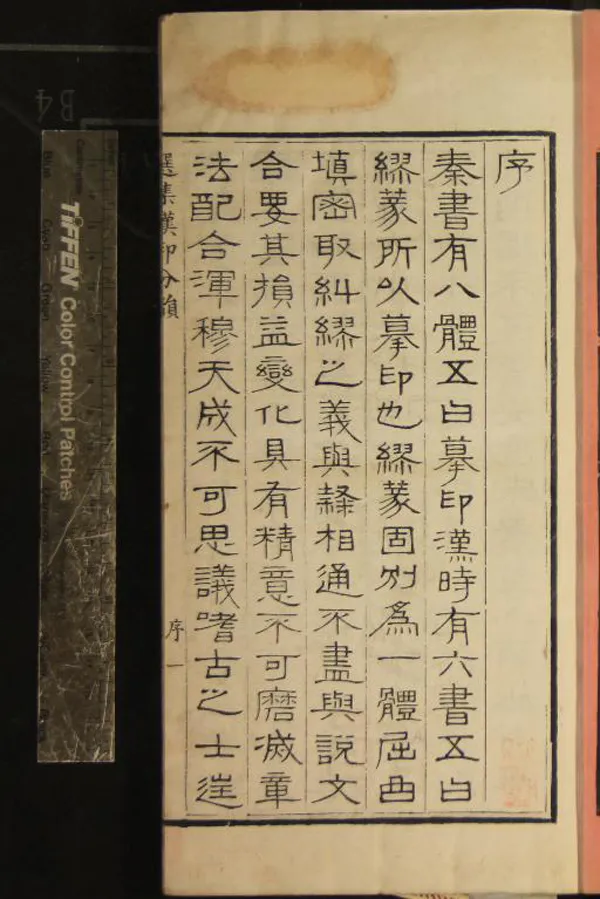 序
秦書有八體五曰摹印漢時有六書五曰
繆篆所以摹印也繆篆固別爲一體屈曲
填密取糾繆之義與隸相通不盡與說文
合要其損益變化具有精意不可磨滅章
法配合渾穆天成不可思議嗜古之士逞
選集漢印分韻
序
一
TIFFEN Color Control Patches
B4